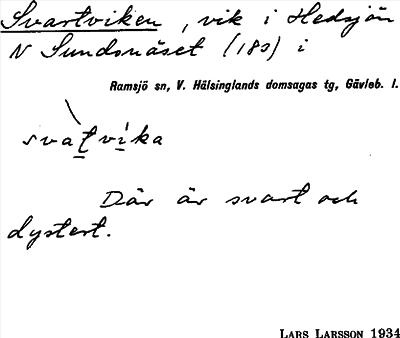 Svartviken, vik i Hedsjön
N Sundsnäset (183) i
Ramsjö sn, V. Hälsinglands domsagas tg, Gävleb. l.
svatvika
Där är svart och
dystert.
LARS LARSSON 1934